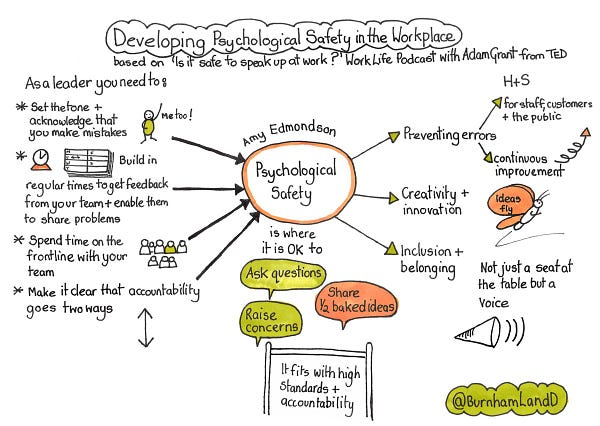 Developing Psychological Safety in the Workplace
based on 'Is it safe to speak up at work?' WorkLife Podcast with Adam Grant from TED
As a leader you need to:
* Set the tone +
acknowledge that
you make mistakes
Me too!
* Build in
regular times to get feedback
from your team + enable them
to share problems
* Spend time on the
frontline with your
team
* Make it clear that accountability
goes two ways
Amy Edmondson
Psychological
Safety
is where
it is OK to
Ask questions
Share
1/2 baked ideas
Raise
concerns
It fits with high
standards +
accountability
Preventing errors
H+S
for staff, customers
+ the public
continuous
improvement
Creativity +
innovation
Ideas
fly
Inclusion +
belonging
Not just a seat at
the table but a
voice
@BurnhamLandD